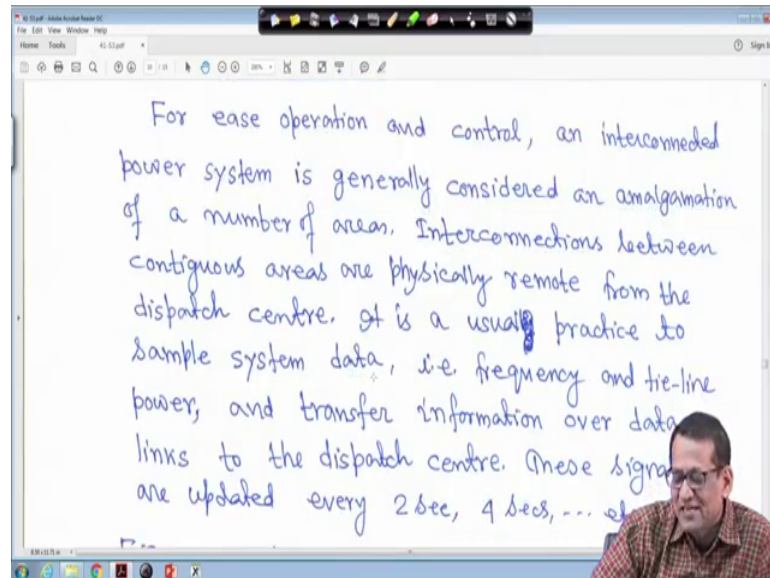 41-53.pdf - Adobe Acrobat Reader DC
File Edit View Window Help
Home Tools 41-53.pdf × Sign In
For ease operation and control, an interconnected
power system is generally considered an amalgamation
of a number of areas. Interconnections between
contiguous areas are physically remote from the
dispatch centre. It is a usual practice to
sample system data, i.e. frequency and tie-line
power, and transfer information over data
links to the dispatch centre. These signa
are updated every 2 sec, 4 secs, ... et